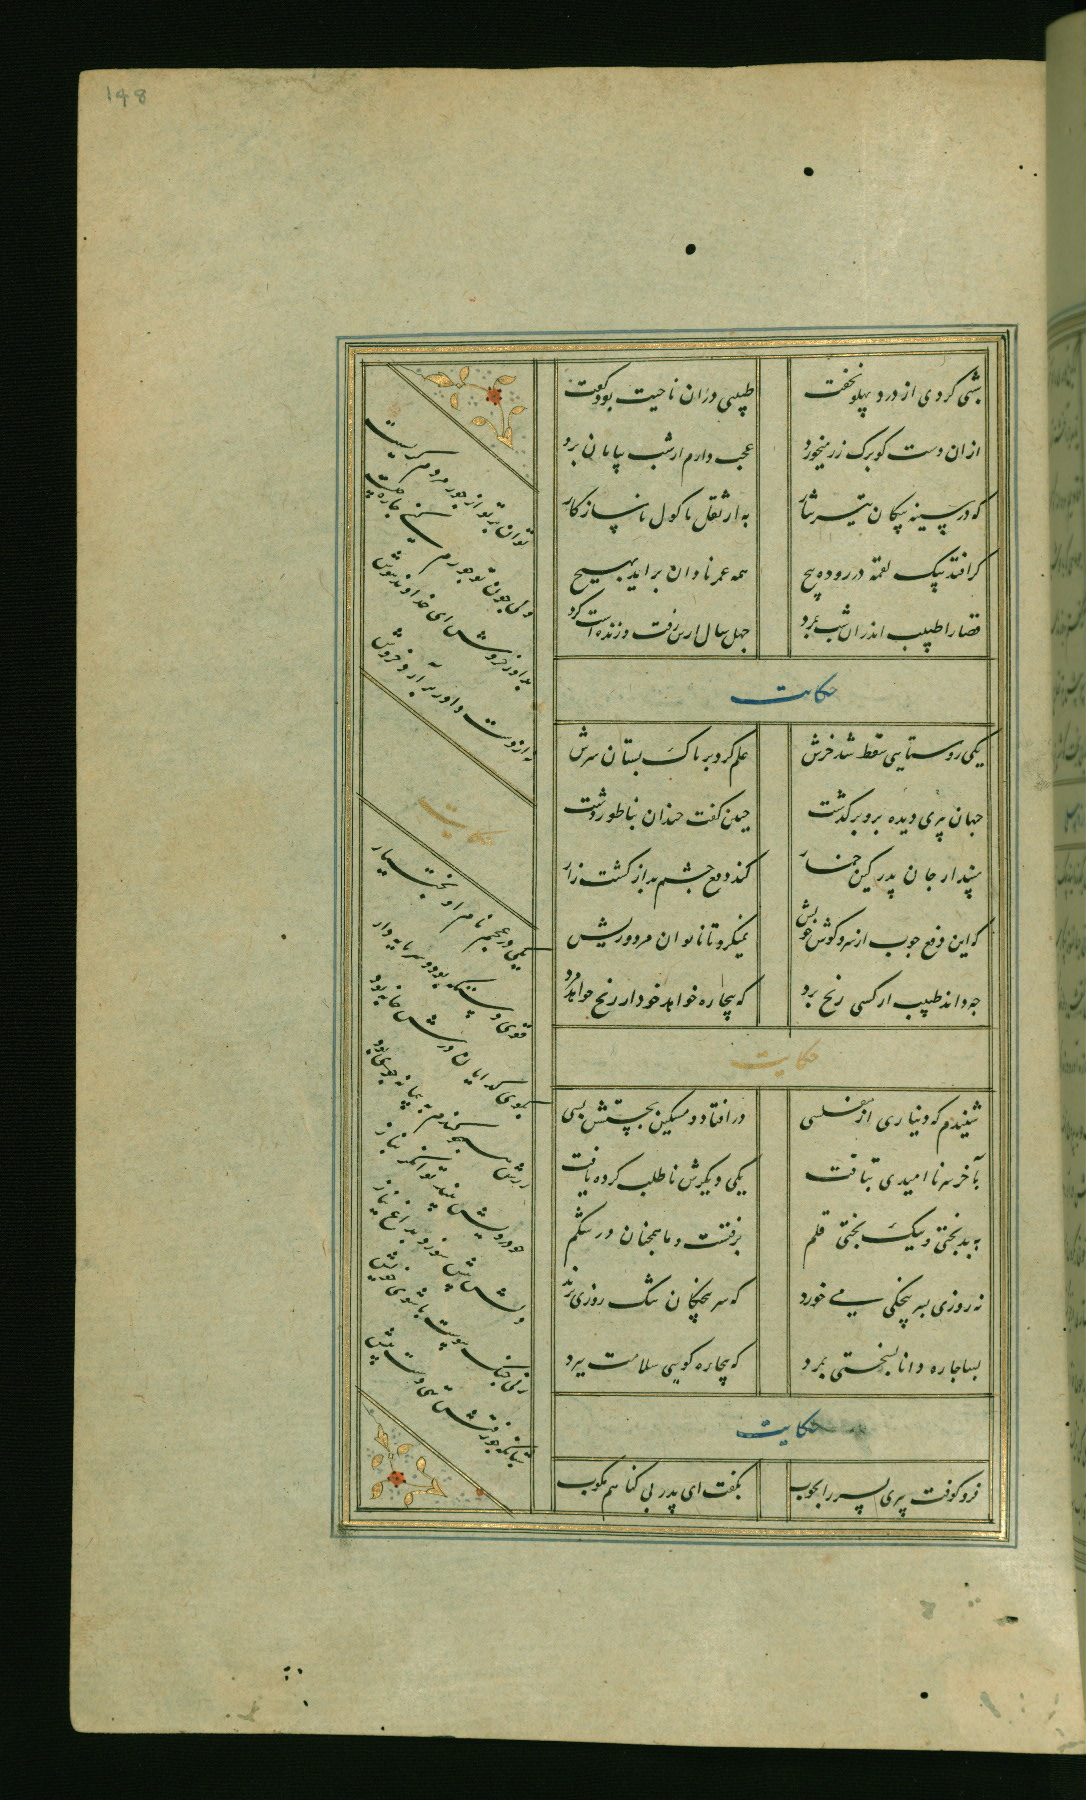 148
شبی کردی از درد پهلو نخفت
طبیبی دران ناحیت بود و کفت
ازان دست کو برک رز میخورد
عجب دارم ار شب بپایان برد
که در سینه پیکان تیر تتار
به از ثقل ماکول ناسازکار
کر افتد بیک لقمه در روده پیچ
همه عمر نادان براید بهیچ
قضا را طبیب اندران شب بمرد
چهل سال ازین رفت و زنده است کرد
حکایت
یکی روستایی سقط شد خرش
علم کرد بر تاک بستان سرش
جهان پیری دیده برو بر کذشت
چنین کفت خندان بناطور دشت
مپندار جان پدر کین حمار
کند دفع چشم بد از کشت زار
که این دفع چوب از سر و کوش خویش
نمیکرد تا ناتوان مرد و ریش
چه داند طبیب از کسی رنج برد
که بیچاره خواهد خود از رنج خواهد مرد
حکایت
شنیدم که دیناری از مفلسی
در افتاد و مسکین بجستش بسی
بآخر سر ناامیدی بتافت
یکی دیکرش ناطلب کرده یافت
به بدبختی و نیک بختی قلم
برفتست و ما همچنان در شکم
نه روزی بسرپنجکی می خورد
که سرپنجکان تنک روزی ترند
بسا چاره دانا بسختی بمرد
که بیچاره کوی سلامت ببرد
حکایت
فرو کوفت پیری پسر را بچوب
بکفت ای پدر بی کناهم مکوب
توان بر تو از جور مردم کریست
ولی چون تو جورم کنی چاره چیست
بداور خروش ای خداوند هوش
نه از دست داور برآر و خروش
حکایت
یکی در عجم نام او بختیار
قوی دستکه بود و سرمایه دار
بکوی کدایان درش خانه بود
زرش همچو کندم به پیمانه بود
چو درویش بیند توانکر بناز
دلش بیش سوزد بداغ نیاز
زنی جنک پیوست با شوی خویش
شبانکه چو رفتش تهی دست پیش